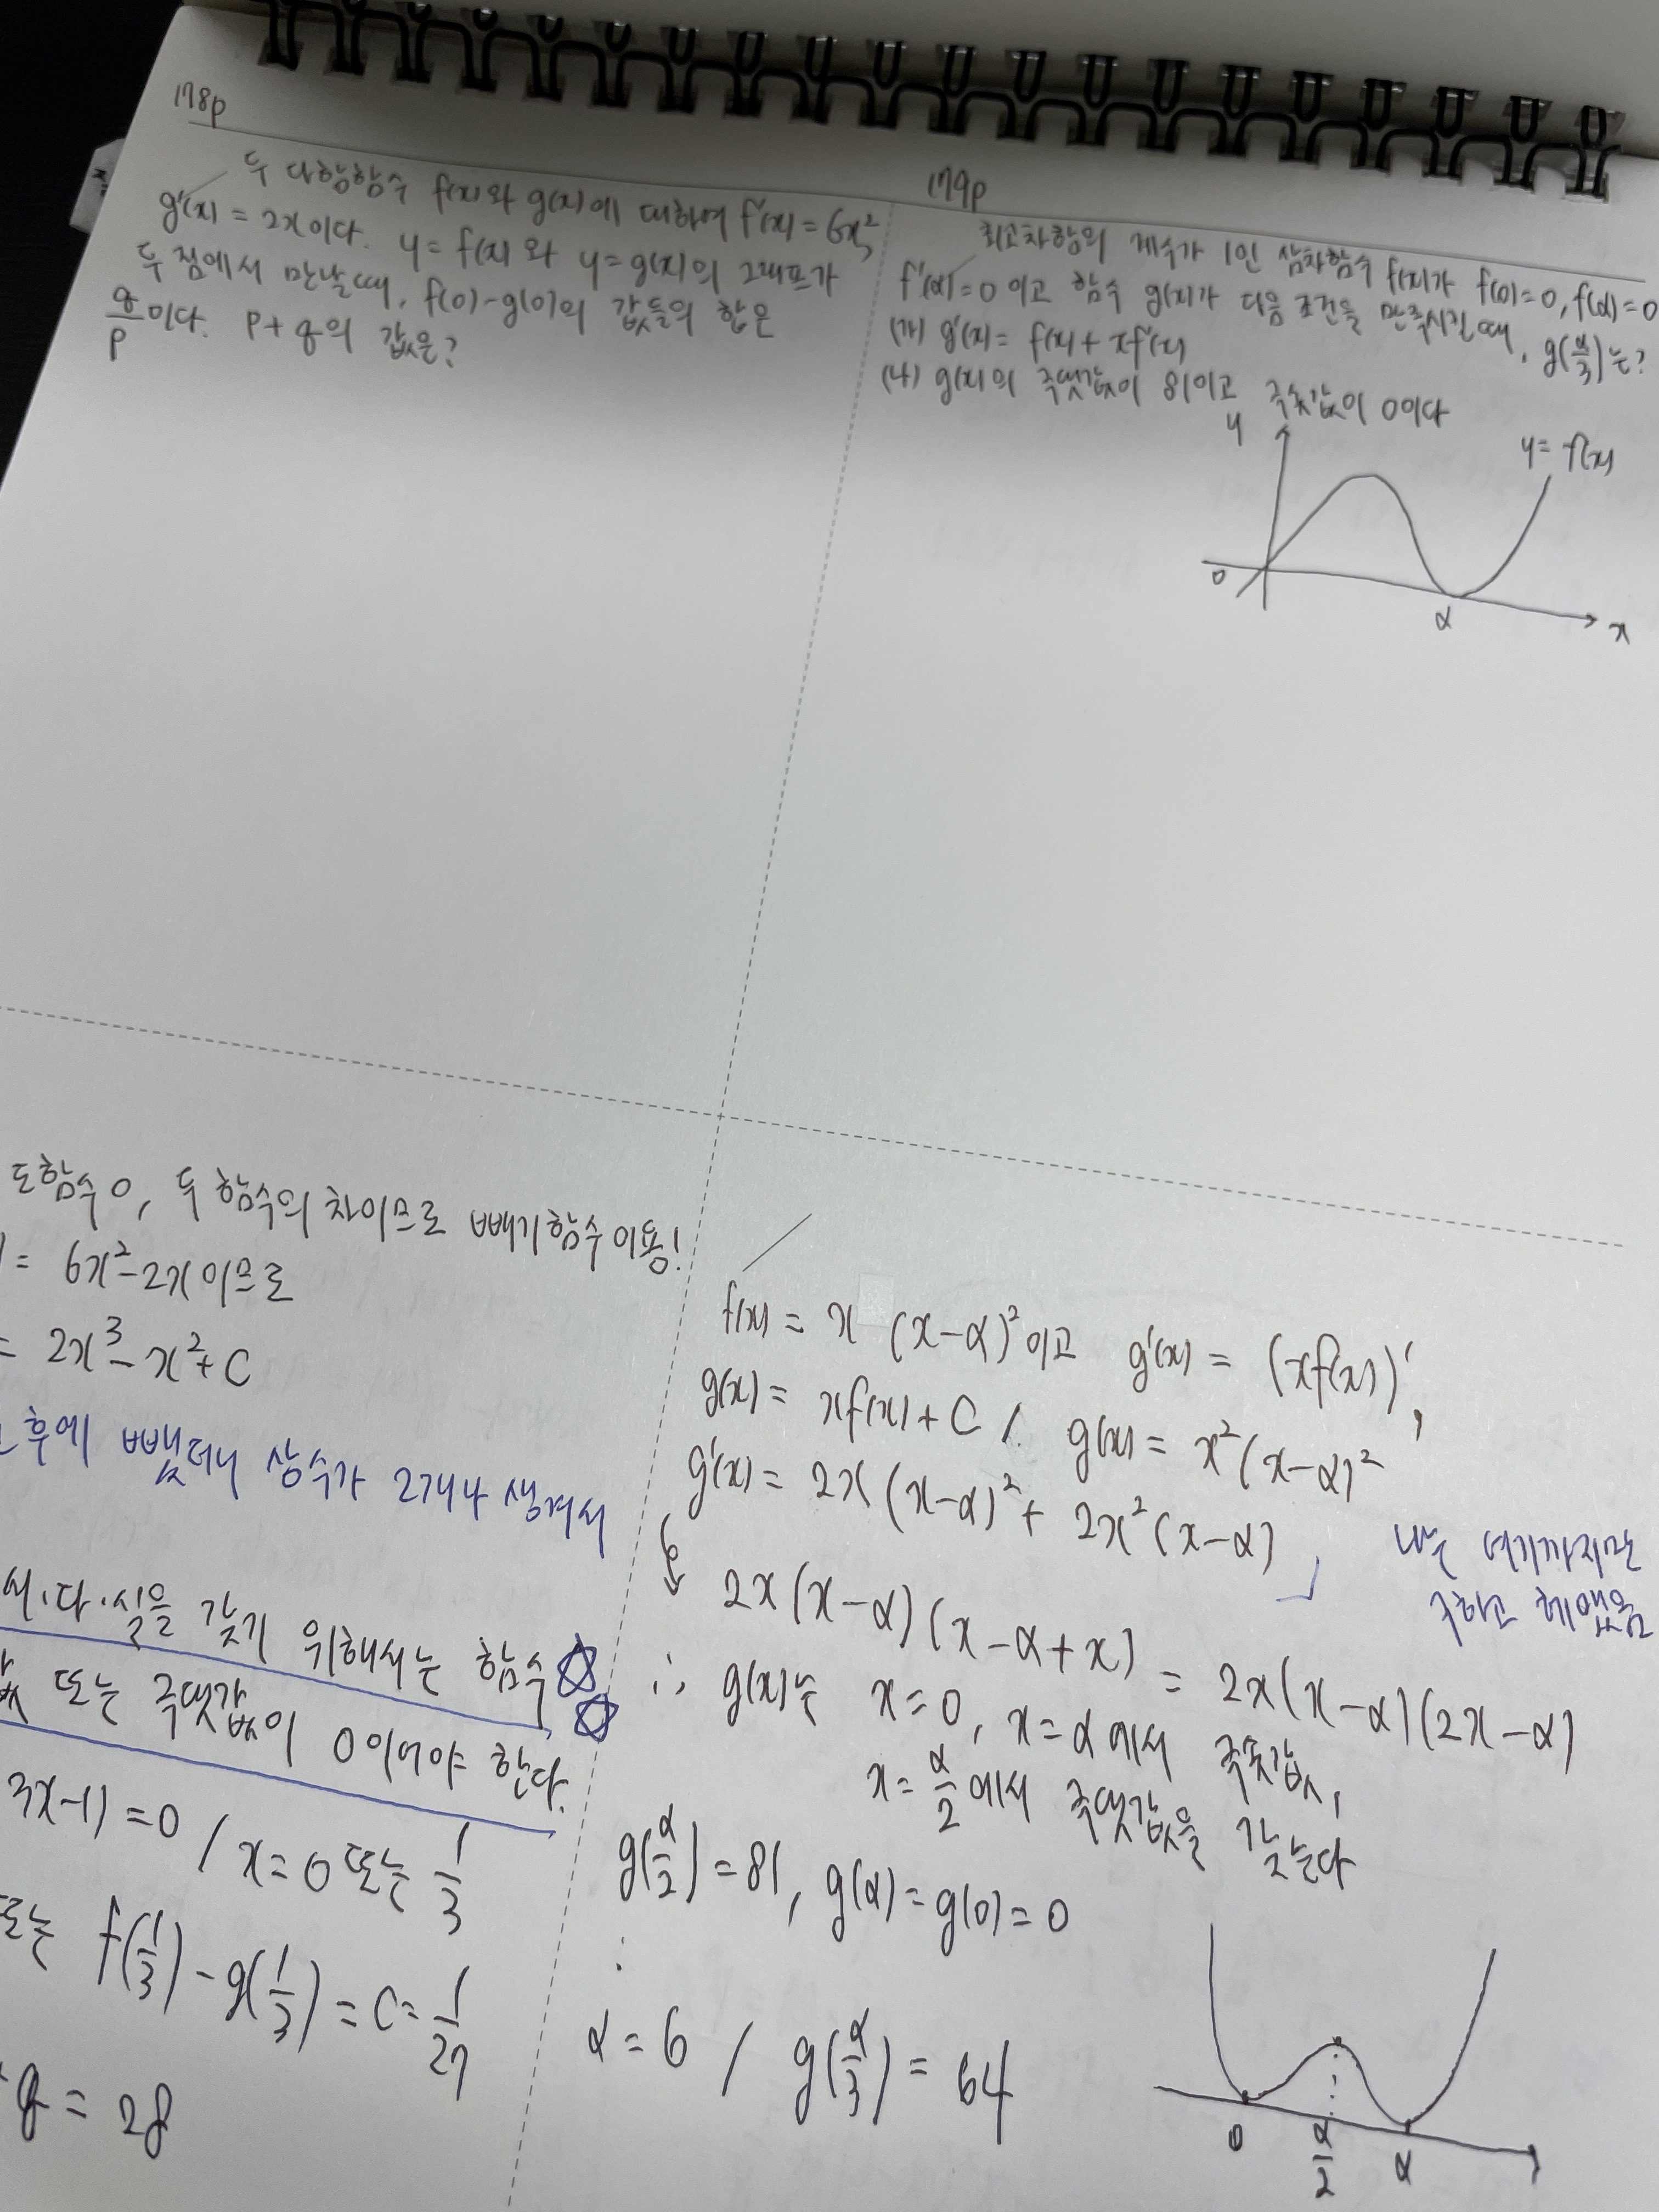 178p
두 다항함수 f(x)와 g(x)에 대하여 f'(x) = 6x²,
g'(x) = 2x이다. y = f(x)와 y = g(x)의 그래프가
두 점에서 만날 때, f(0)-g(0)의 값들의 합은
q/p이다. p+q의 값은?
179p
최고차항의 계수가 1인 삼차함수 f(x)가 f(0)=0, f(α)=0
f'(α)=0이고 함수 g(x)가 다음 조건을 만족시킬 때, g(α/3)는?
(가) g'(x) = f(x) + xf'(x)
(나) g(x)의 극댓값이 81이고 극솟값이 0이다
y
y = f(x)
0
α
x
도함수 0, 두 함수의 차이므로 빼기함수 이용!
= 6x²-2x이므로
= 2x³-x²+C
후에 뺐더니 상수가 2개나 생겨서
서·다·실을 갖기 위해서는 함수 ☆
또는 극댓값이 0이어야 한다. ☆
3x-1) = 0 / x = 0 또는 1/3
또는 f(1/3) - g(1/3) = C = 1/27
q = 28
f(x) = x (x-α)²이고 g'(x) = (xf(x))',
g(x) = xf(x)+C / g(x) = x²(x-α)²
g'(x) = 2x(x-α)² + 2x²(x-α)
나는 여기까지만
구하고 헤맸음
↳ 2x(x-α)(x-α+x) = 2x(x-α)(2x-α)
∴ g(x)는 x=0, x=α에서 극솟값,
x = α/2에서 극댓값을 갖는다
g(α/2) = 81, g(α) = g(0) = 0
⋮
α = 6 / g(α/3) = 64
0
α/2
α